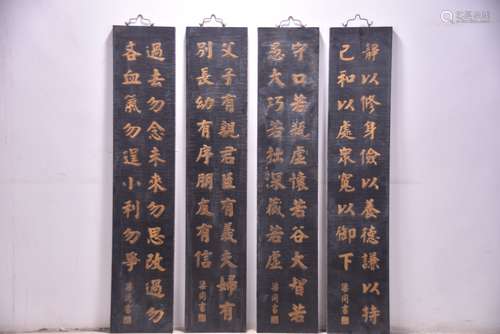 靜以修身儉以養德謙以持
己和以處眾寬以御下
梁同書
守口若瓶虛懷若谷大智若
愚大巧若拙深藏若虛
梁同書
父子有親君臣有義夫婦有
別長幼有序朋友有信
梁同書
過去勿念未來勿思改過勿
吝血氣勿逞小利勿爭
梁同書